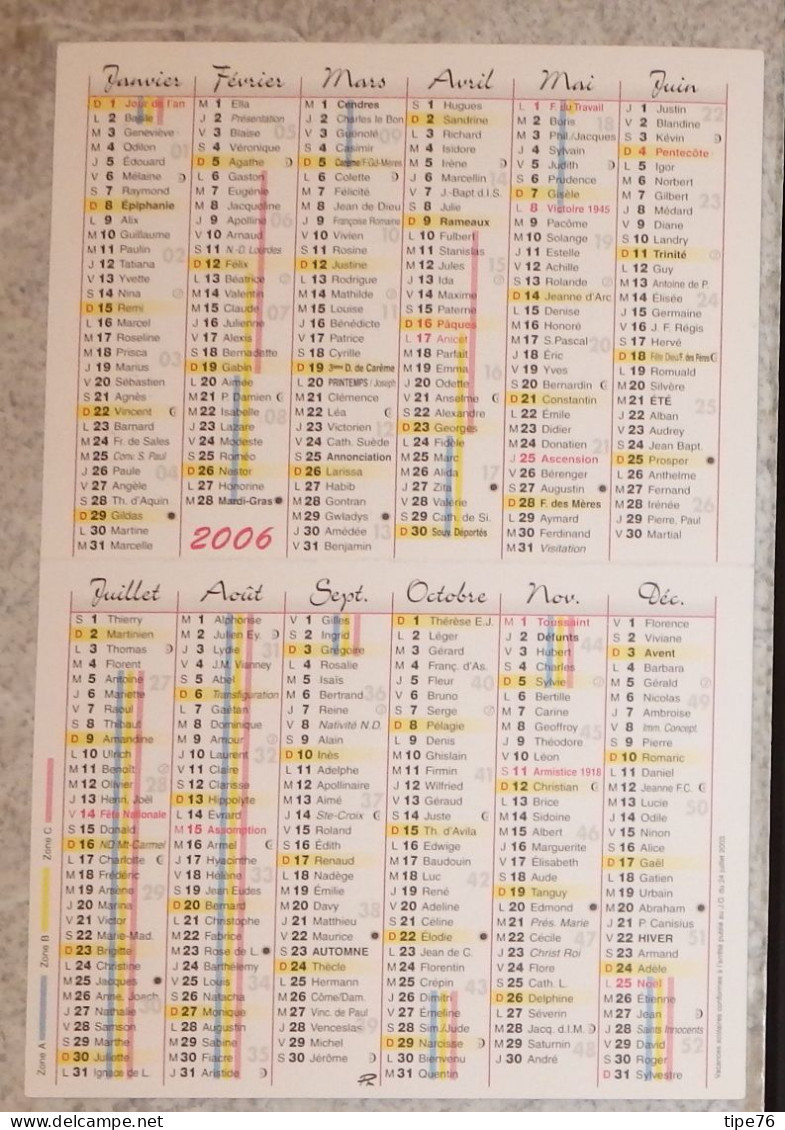 Janvier
D 1 Jour de l'an
L 2 Basile
M 3 Geneviève
M 4 Odilon
J 5 Édouard
V 6 Mélaine
S 7 Raymond
D 8 Épiphanie
L 9 Alix
M 10 Guillaume
M 11 Paulin
J 12 Tatiana
V 13 Yvette
S 14 Nina
D 15 Remi
L 16 Marcel
M 17 Roseline
M 18 Prisca
J 19 Marius
V 20 Sébastien
S 21 Agnès
D 22 Vincent
L 23 Barnard
M 24 Fr. de Sales
M 25 Conv. S. Paul
J 26 Paule
V 27 Angèle
S 28 Th. d'Aquin
D 29 Gildas
L 30 Martine
M 31 Marcelle
Février
M 1 Ella
J 2 Présentation
V 3 Blaise
S 4 Véronique
D 5 Agathe
L 6 Gaston
M 7 Eugénie
M 8 Jacqueline
J 9 Apolline
V 10 Arnaud
S 11 N.-D. Lourdes
D 12 Félix
L 13 Béatrice
M 14 Valentin
M 15 Claude
J 16 Julienne
V 17 Alexis
S 18 Bernadette
D 19 Gabin
L 20 Aimée
M 21 P. Damien
M 22 Isabelle
J 23 Lazare
V 24 Modeste
S 25 Roméo
D 26 Nestor
L 27 Honorine
M 28 Mardi-Gras
2006
Mars
M 1 Cendres
J 2 Charles le Bon
V 3 Guénolé
S 4 Casimir
D 5 Carême F.G.-Mères
L 6 Colette
M 7 Félicité
M 8 Jean de Dieu
J 9 Françoise Romaine
V 10 Vivien
S 11 Rosine
D 12 Justine
L 13 Rodrigue
M 14 Mathilde
M 15 Louise
J 16 Bénédicte
V 17 Patrice
S 18 Cyrille
D 19 3ème D. de Carême
L 20 PRINTEMPS / Joseph
M 21 Clémence
M 22 Léa
J 23 Victorien
V 24 Cath. Suède
S 25 Annonciation
D 26 Larissa
L 27 Habib
M 28 Gontran
M 29 Gwladys
J 30 Amédée
V 31 Benjamin
Avril
S 1 Hugues
D 2 Sandrine
L 3 Richard
M 4 Isidore
M 5 Irène
J 6 Marcellin
V 7 J.-Bapt d.l.S.
S 8 Julie
D 9 Rameaux
L 10 Fulbert
M 11 Stanislas
M 12 Jules
J 13 Ida
V 14 Maxime
S 15 Paterne
D 16 Pâques
L 17 Anicet
M 18 Parfait
M 19 Emma
J 20 Odette
V 21 Anselme
S 22 Alexandre
D 23 Georges
L 24 Fidèle
M 25 Marc
M 26 Alida
J 27 Zita
V 28 Valérie
S 29 Cath. de Si.
D 30 Souv. Déportés
Mai
L 1 F. du Travail
M 2 Boris
M 3 Phil./Jacques
J 4 Sylvain
V 5 Judith
S 6 Prudence
D 7 Gisèle
L 8 Victoire 1945
M 9 Pacôme
M 10 Solange
J 11 Estelle
V 12 Achille
S 13 Rolande
D 14 Jeanne d'Arc
L 15 Denise
M 16 Honoré
M 17 S.Pascal
J 18 Éric
V 19 Yves
S 20 Bernardin
D 21 Constantin
L 22 Émile
M 23 Didier
M 24 Donatien
J 25 Ascension
V 26 Bérenger
S 27 Augustin
D 28 F. des Mères
L 29 Aymard
M 30 Ferdinand
M 31 Visitation
Juin
J 1 Justin
V 2 Blandine
S 3 Kévin
D 4 Pentecôte
L 5 Igor
M 6 Norbert
M 7 Gilbert
J 8 Médard
V 9 Diane
S 10 Landry
D 11 Trinité
L 12 Guy
M 13 Antoine de P.
M 14 Élisée
J 15 Germaine
V 16 J. F. Régis
S 17 Hervé
D 18 Fête Dieu/F. des Pères
L 19 Romuald
M 20 Silvère
M 21 ÉTÉ
J 22 Alban
V 23 Audrey
S 24 Jean Bapt.
D 25 Prosper
L 26 Anthelme
M 27 Fernand
M 28 Irénée
J 29 Pierre, Paul
V 30 Martial
Juillet
S 1 Thierry
D 2 Martinien
L 3 Thomas
M 4 Florent
M 5 Antoine
J 6 Mariette
V 7 Raoul
S 8 Thibaut
D 9 Amandine
L 10 Ulrich
M 11 Benoît
M 12 Olivier
J 13 Henri, Joël
V 14 Fête Nationale
S 15 Donald
D 16 ND Mt-Carmel
L 17 Charlotte
M 18 Frédéric
M 19 Arsène
J 20 Marina
V 21 Victor
S 22 Marie-Mad.
D 23 Brigitte
L 24 Christine
M 25 Jacques
M 26 Anne, Joach
J 27 Nathalie
V 28 Samson
S 29 Marthe
D 30 Juliette
L 31 Ignace de L.
Août
M 1 Alphonse
M 2 Julien Ey.
J 3 Lydie
V 4 J.M. Vianney
S 5 Abel
D 6 Transfiguration
L 7 Gaétan
M 8 Dominique
M 9 Amour
J 10 Laurent
V 11 Claire
S 12 Clarisse
D 13 Hippolyte
L 14 Évrard
M 15 Assomption
M 16 Armel
J 17 Hyacinthe
V 18 Hélène
S 19 Jean Eudes
D 20 Bernard
L 21 Christophe
M 22 Fabrice
M 23 Rose de L.
J 24 Barthélemy
V 25 Louis
S 26 Natacha
D 27 Monique
L 28 Augustin
M 29 Sabine
M 30 Fiacre
J 31 Aristide
Sept.
V 1 Gilles
S 2 Ingrid
D 3 Grégoire
L 4 Rosalie
M 5 Isaïs
M 6 Bertrand
J 7 Reine
V 8 Nativité N.D.
S 9 Alain
D 10 Inès
L 11 Adelphe
M 12 Apollinaire
M 13 Aimé
J 14 Ste-Croix
V 15 Roland
S 16 Édith
D 17 Renaud
L 18 Nadège
M 19 Émilie
M 20 Davy
J 21 Matthieu
V 22 Maurice
S 23 AUTOMNE
D 24 Thècle
L 25 Hermann
M 26 Côme/Dam.
M 27 Vinc. de Paul
J 28 Venceslas
V 29 Michel
S 30 Jérôme
Octobre
D 1 Thérèse E.J.
L 2 Léger
M 3 Gérard
M 4 Franç. d'As.
J 5 Fleur
V 6 Bruno
S 7 Serge
D 8 Pélagie
L 9 Denis
M 10 Ghislain
M 11 Firmin
J 12 Wilfried
V 13 Géraud
S 14 Juste
D 15 Th. d'Avila
L 16 Edwige
M 17 Baudouin
M 18 Luc
J 19 René
V 20 Adeline
S 21 Céline
D 22 Élodie
L 23 Jean de C.
M 24 Florentin
M 25 Crépin
J 26 Dimitri
V 27 Émeline
S 28 Sim./Jude
D 29 Narcisse
L 30 Bienvenu
M 31 Quentin
Nov.
M 1 Toussaint
J 2 Défunts
V 3 Hubert
S 4 Charles
D 5 Sylvie
L 6 Bertille
M 7 Carine
M 8 Geoffroy
J 9 Théodore
V 10 Léon
S 11 Armistice 1918
D 12 Christian
L 13 Brice
M 14 Sidoine
M 15 Albert
J 16 Marguerite
V 17 Élisabeth
S 18 Aude
D 19 Tanguy
L 20 Edmond
M 21 Prés. Marie
M 22 Cécile
J 23 Christ Roi
V 24 Flore
S 25 Cath. L.
D 26 Delphine
L 27 Séverin
M 28 Jacq. d.l.M.
M 29 Saturnin
J 30 André
Déc.
V 1 Florence
S 2 Viviane
D 3 Avent
L 4 Barbara
M 5 Gérald
M 6 Nicolas
J 7 Ambroise
V 8 Imm. Concept.
S 9 Pierre
D 10 Romaric
L 11 Daniel
M 12 Jeanne F.C.
M 13 Lucie
J 14 Odile
V 15 Ninon
S 16 Alice
D 17 Gaël
L 18 Gatien
M 19 Urbain
M 20 Abraham
J 21 P. Canisius
V 22 HIVER
S 23 Armand
D 24 Adèle
L 25 Noël
M 26 Étienne
M 27 Jean
J 28 Saints Innocents
V 29 David
S 30 Roger
D 31 Sylvestre
Zone A
Zone B
Zone C
Vacances scolaires conformes à l'arrêté publié au J.O. du 24 juillet 2003
tipe76